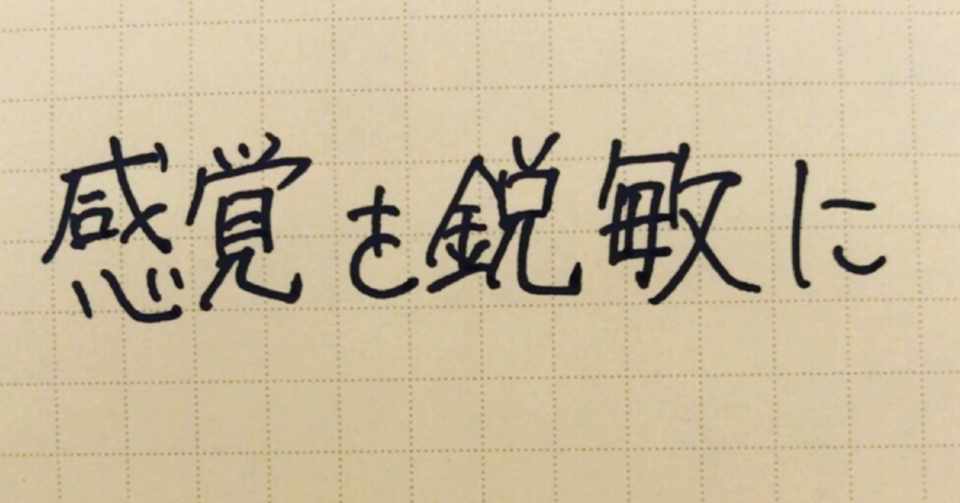 感覚を鋭敏に